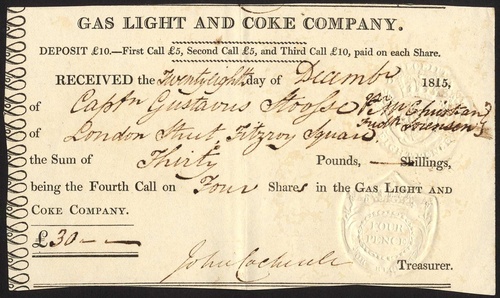 GAS LIGHT AND COKE COMPANY.
DEPOSIT £10.—First Call £5, Second Call £5, and Third Call £10, paid on each Share.
RECEIVED the Twentyeighth day of December 1815,
of Captn Gustavus
of London Street Fitzroy Square Fredk Sorensen
the Sum of Thirty Pounds, — Shillings,
being the Fourth Call on Four Shares in the GAS LIGHT AND
COKE COMPANY.
£30 — —
FOUR
PENCE
John Treasurer.